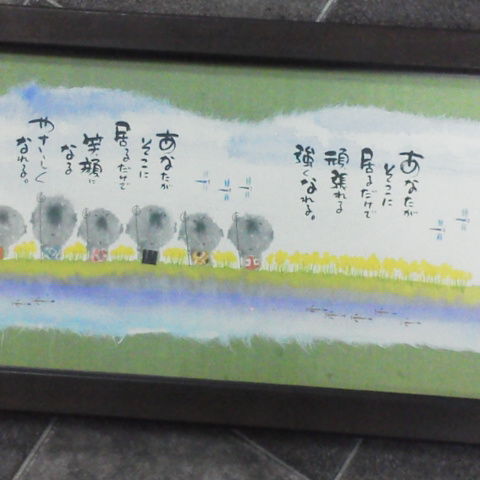 あなたが
そこに
居るだけで
頑張れる
強くなれる。
あなたが
そこに
居るだけで
笑顔に
なる
やさしく
なれる。